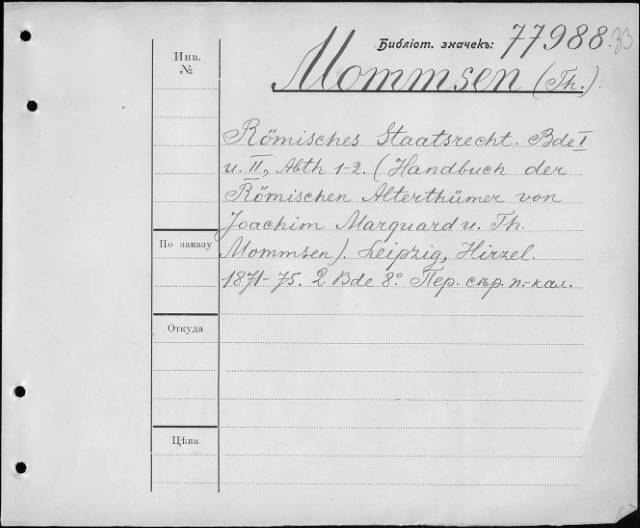 Библіот. значекъ: 77988.
Инв. №
Mommsen (Th.)
Römisches Staatsrecht. Bde I
u. II, Abth 1-2. (Handbuch der
Römischen Alterthümer von
Joachim Marquard u. Th.
По заказу
Mommsen). Leipzig, Hirzel.
1871-75. 2 Bde 8° Пер. сѣр. п.-кал.
Откуда
Цѣна